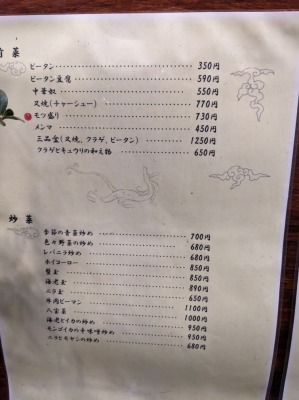 前菜
ピータン 350円
ピータン豆腐 590円
中華奴 550円
叉焼(チャーシュー) 770円
モツ盛り 730円
メンマ 450円
三品盆(叉焼,クラゲ,ピータン) 1250円
クラゲとキュウリの和え物 650円
炒菜
季節の青菜炒め 700円
色々野菜の炒め 680円
レバニラ炒め 680円
ホイコーロー 850円
蟹玉 850円
海老玉 890円
ニラ玉 650円
牛肉ピーマン 1100円
八宝菜 1000円
海老とイカの炒め 950円
モンゴイカの辛味噌炒め 950円
ニラとモヤシの炒め 680円